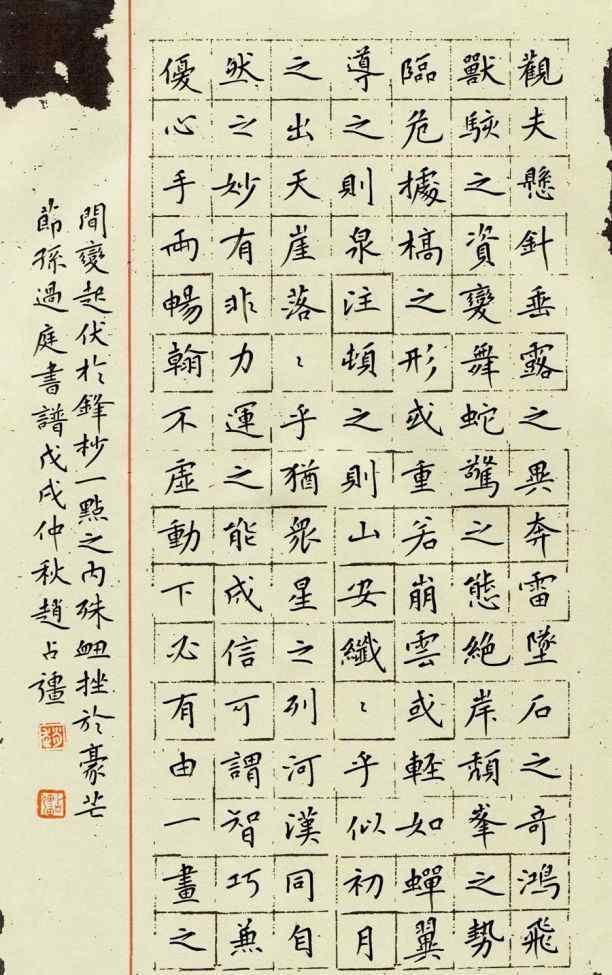 觀夫懸針垂露之異奔雷墜石之奇鴻飛
獸駭之資變舞蛇驚之態絶岸頹峯之勢
臨危據槁之形或重若崩雲或輕如蟬翼
導之則泉注頓之則山安纖〻乎似初月
之出天崖落〻乎猶衆星之列河漢同自
然之妙有非力運之能成信可謂智巧兼
優心手兩暢翰不虛動下必有由一畫之
間變起伏於鋒杪一點之内殊衄挫於豪芒
節孫過庭書譜戊戌仲秋趙占疆